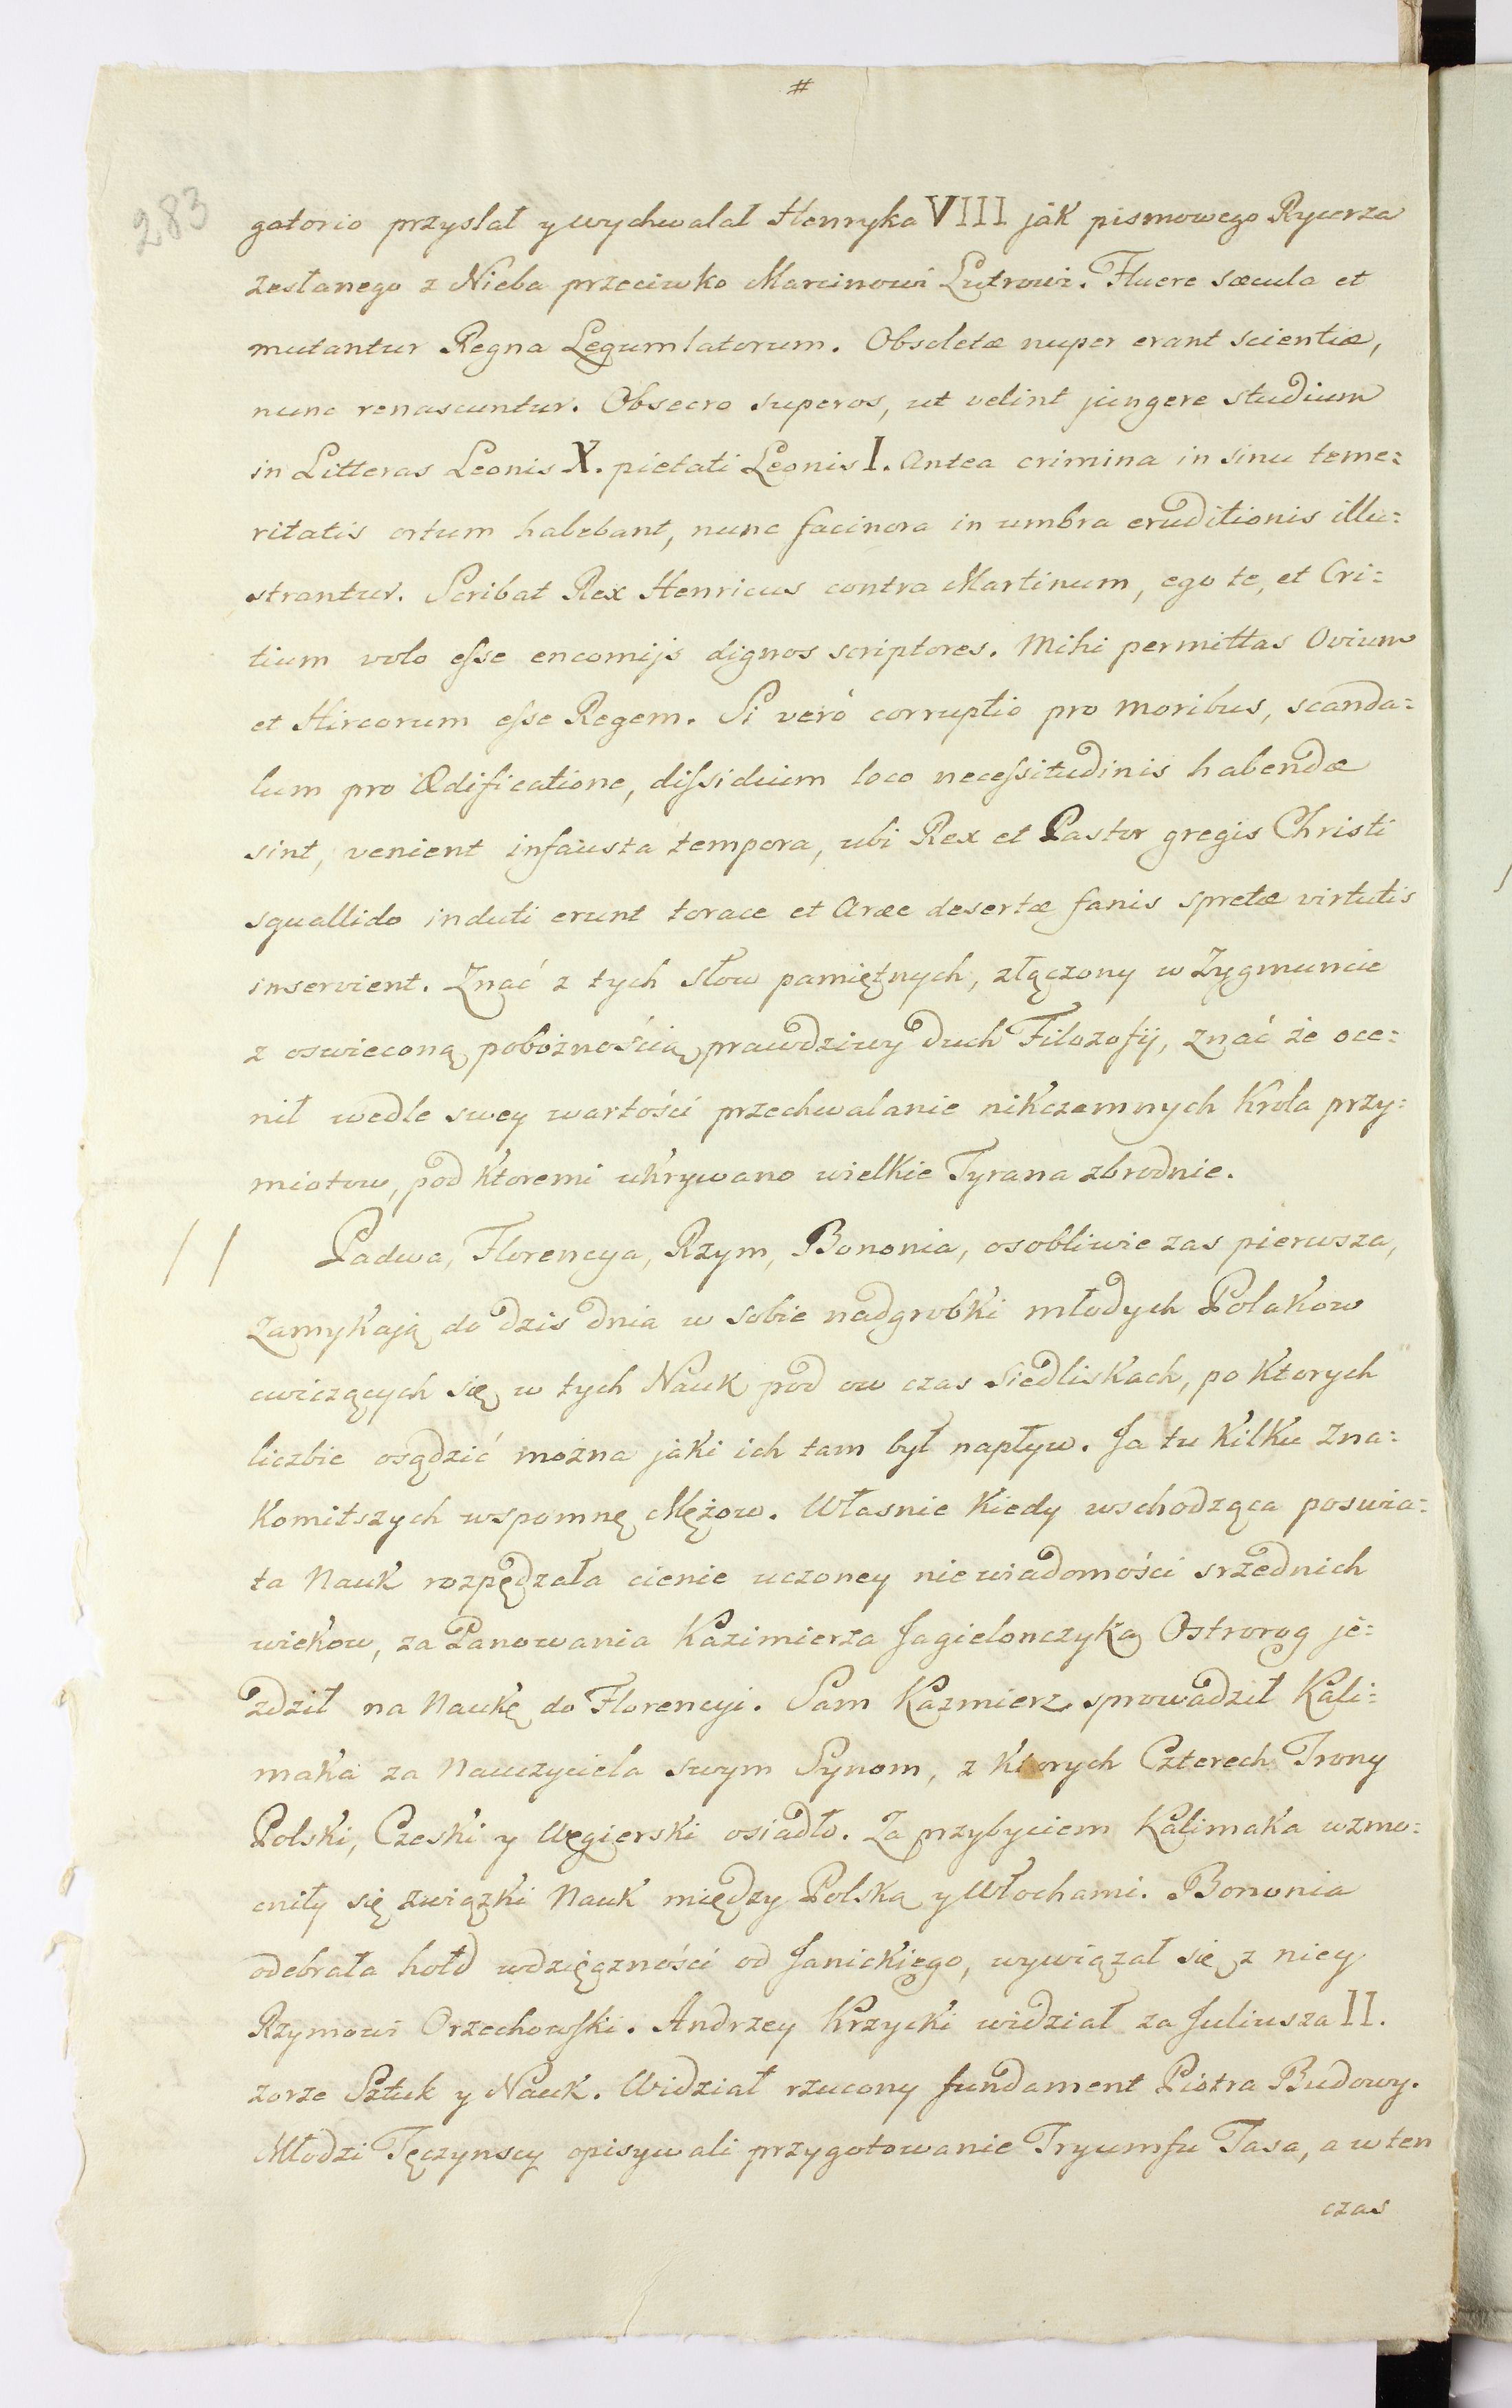 #
283
gatorio przysłał y wychwalał Henryka VIII jak pismowego Rycerza
zesłanego z Nieba przeciwko Marcinowi Lutrowi. Fluere sæcula et
mutantur Regna Legumlatorum. Obsoletæ nuper erant scientiæ,
nunc renascuntur. Obsecro superos, ut velint jungere studium
in Litteras Leonis X. pietati Leonis I. Antea crimina in sinu teme=
ritatis ortum habebant, nunc facinora in umbra eruditionis illu=
strantur. Scribat Rex Henricus contra Martinum, ego te, et Cri=
tium volo eſse encomijs dignos scriptores. Mihi permittas Ovium
et Hircorum eſse Regem. Si veró corruptio pro moribus, scanda=
lum pro Ædificatione, diſsidium loco neceſsitudinis habendæ
sint, venient infausta tempora, ubi Rex et Pastor gregis Christi
squallido induti erunt torace et Aræe desertæ fanis spretæ virtutis
inservient. Znać z tych słow pamiętnych, złączony w Zygmuncie
z oswieconą pobożnością prawdziwy duch Filozofij, znać że oce=
nił wedle swey wartości przechwalanie nikczemnych Krola przy=
miotow, pod ktoremi ukrywano wielkie Tyrana zbrodnie.
// Padwa, Florencya, Rzym, Bononia, osobliwie zas pierwsza,
zamykają do dzis dnia w sobie nadgrobki młodych Polakow
cwiczących się w tych Nauk pod ow czas siedliskach, po ktorych
liczbie osądzić można jaki ich tam był napływ. Ja tu kilku zna=
komitszych wspomnę Mężow. Własnie kiedy wschodząca poswia=
ta Nauk rozpędzała cienie uczoney niewiadomości srzednich
wiekow, za Panowania Kazimierza Jagielonczyka Ostrorog je=
zdził na Naukę do Florencyi. Sam Kazmierz sprowadził Kali=
maka za Nauczyciela swym Synom, z ktorych Czterech Trony
Polski, Czeski y Węgierski osiadło. Za przybyciem Kalimaka wzmo=
cniły się związki Nauk między Polską y Włochami. Bononia
odebrała hołd wdzięczności od Janickiego, wywiązał się z niey
Rzymowi Orzechowſki. Andrzey Krzycki widział za Juliusza II.
zorze Sztuk y Nauk. Widział rzucony fundament Piotra Budowy.
Młodzi Tęczynscy opisywali przygotowanie Tryumfu Tasa, a w ten
czas